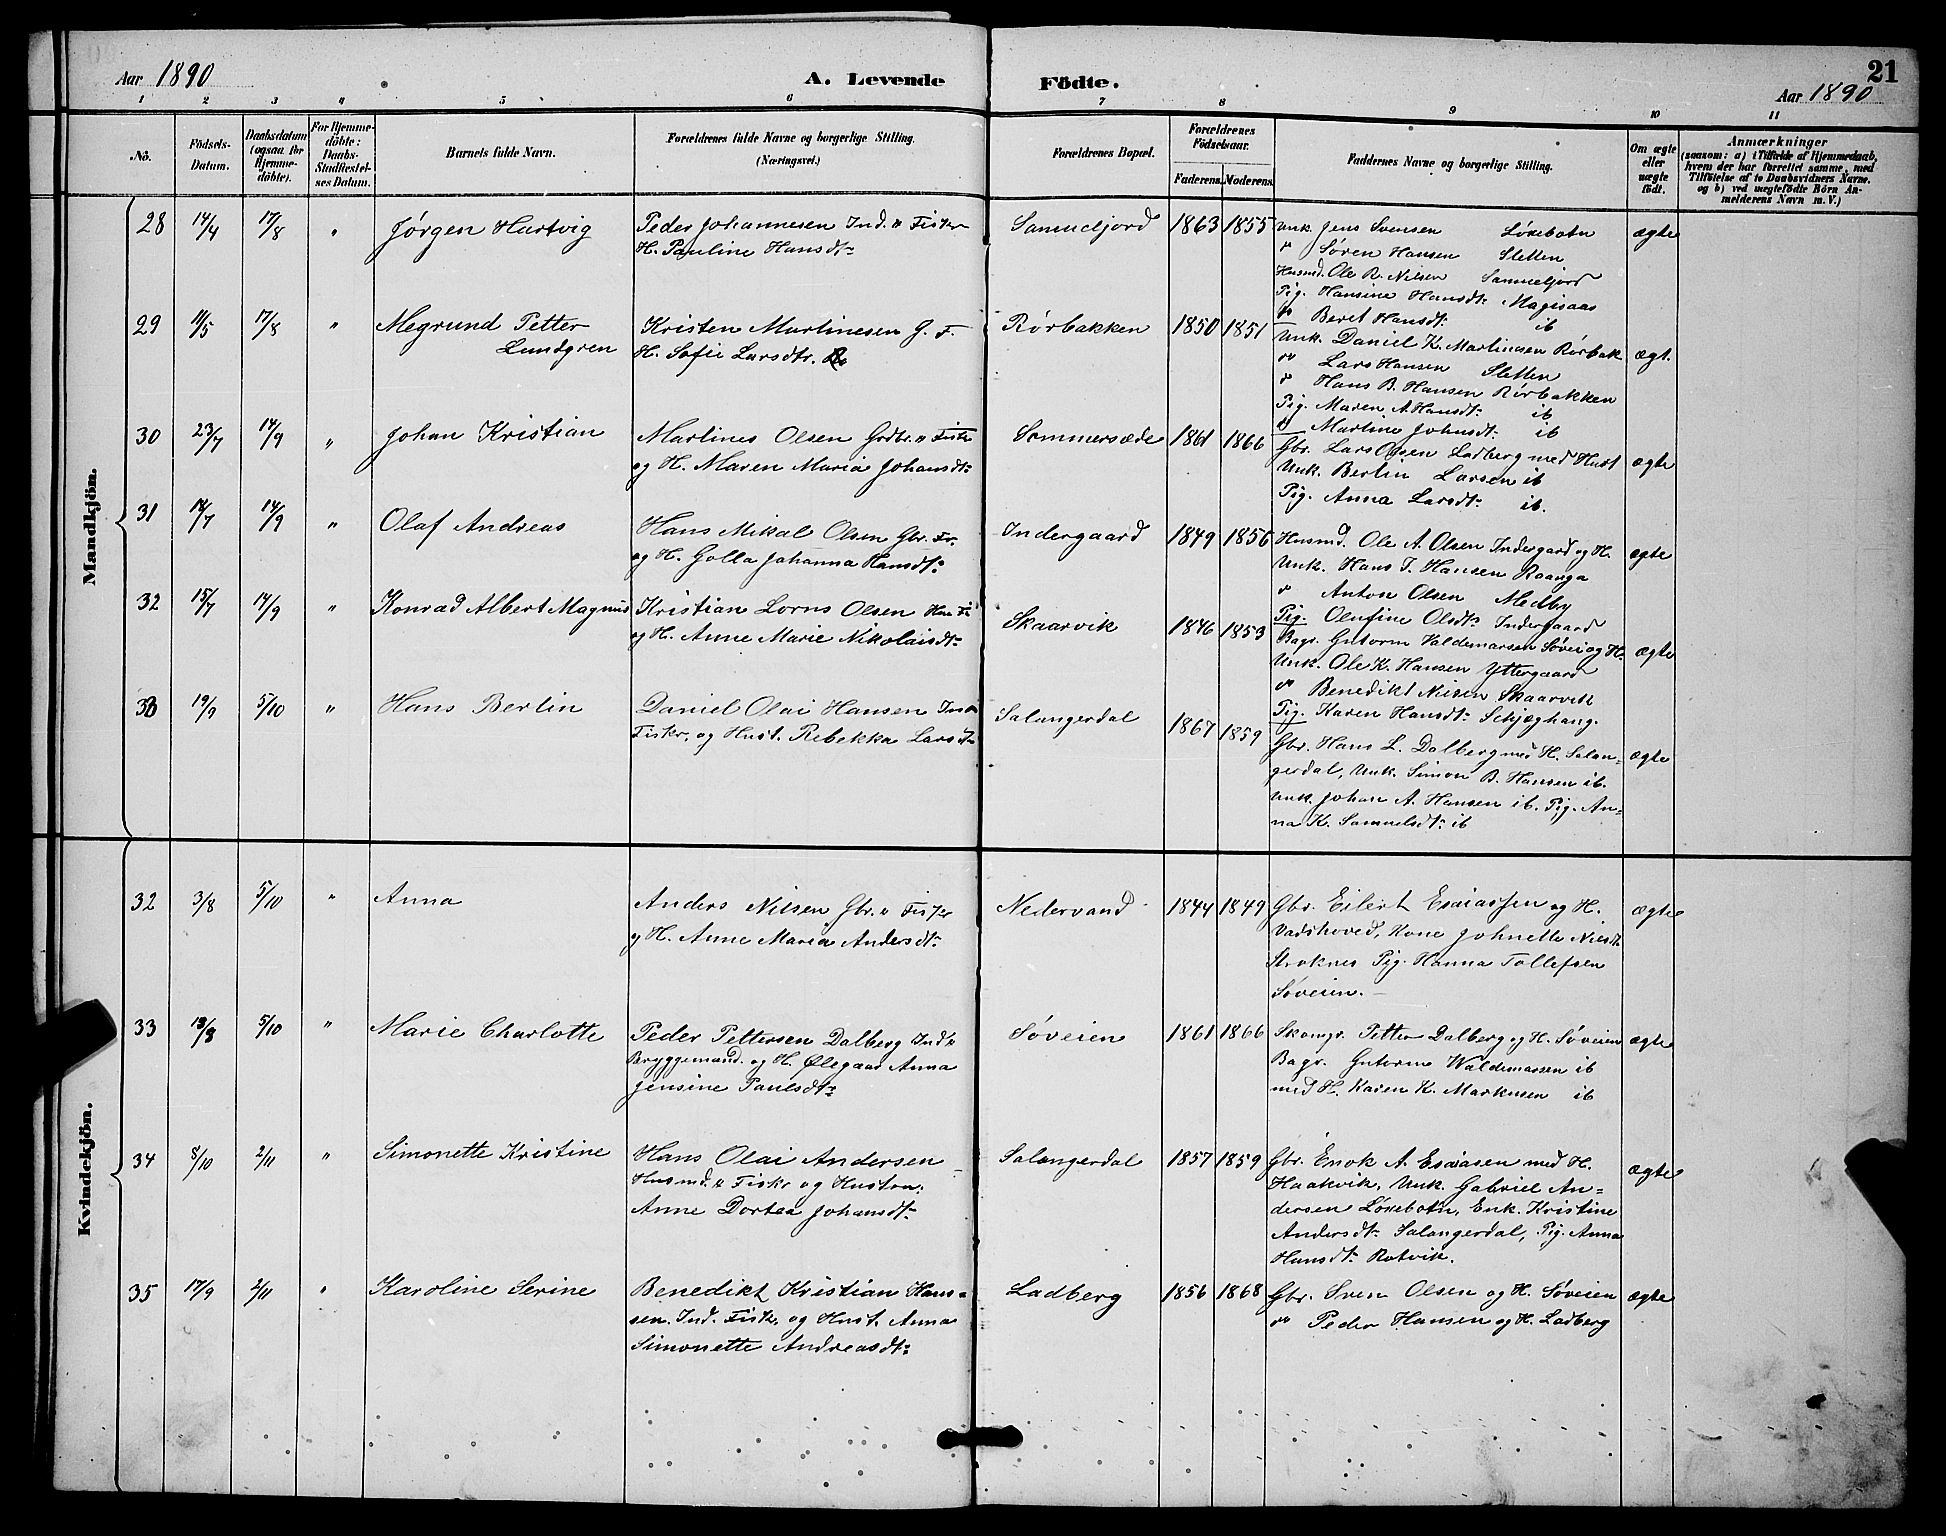 Aar 1890
A. Levende Födte.
21
Aar 1890
1 2 3 4 5 6 7 8 9 10 11
No.
Födsels-Datum.
Daabsdatum (ogsaa for Hjemme-döbte).
For Hjemme-döbte: Daabs-Stadfæstel-ses Datum.
Barnets fulde Navn.
Forældrenes fulde Navne og borgerlige Stilling. (Næringsvei.)
Forældrenes Bopæl.
Forældrenes Födselsaar.
Faderens. Moderens.
Faddernes Navne og borgerlige Stilling.
Om ægte eller uægte födt.
Anmærkninger
(saasom: a) i Tilfælde af Hjemmedaab, hvem der har forrettet samme, med Tilföielse af to Daabsvidners Navne, og b) ved uægtefödte Börn An-melderens Navn m. V.)
Mandkjön.
28 14/4 17/8 " Jørgen Hartvig
Peder Johannesen Ind. & Fisker
H. Pauline Hansdtr.
Sammelfjord 1863 1855
Unk. Jens Svensen Løksebotn
" Søren Hansen Sletten
Husmd. Ole R. Nilsen Sammelfjord
Pig. Hansine Hansdtr. Magisaas
" Beret Hansdtr. ib
ægte
29 11/5 17/8 " Megrund Petter
Lundgren
Kristen Martinesen G. F.
H. Sofie Larsdtr.
Rørbakken 1850 1851
Unk. Daniel K. Martinesen Rørbak
" Lars Hansen Sletten
" Hans B. Hansen Rørbakken
Pig. Maren A. Hansdtr. ib
" Martine Johnsdtr. ib
ægt.
30 23/7 14/9 " Johan Kristian
Martines Olsen Grdbr. & Fiskr
og H. Maren Maria Johansdtr.
Sommersæde 1861 1866
Gbr. Lars Olsen Ladberg med Hust
Unk. Berlin Larsen ib
Pig. Anna Larsdtr. ib.
ægte
31 12/7 14/9 " Olaf Andreas
Hans Mikal Olsen Gbr. Fr.
og H. Golla Johanna Hansdtr.
Indergaard 1849 1856
Husmd. Ole A. Olsen Indergard og H.
Unk. Hans T. Hansen Kaanga
" Anton Olsen Medby
Pig. Olufine Olsdtr. Indergaard
ægte
32 15/7 14/9 " Konrad Albert Magnus
Kristian Lorns Olsen
og H. Anne Marie Nikolaisdtr.
Skaarvik 1846 1853
Bagr. Gutorm Valdemarsen Søvei og H.
Unk. Ole K. Hansen Yttergaard
" Benedikt Nilsen Skaarvik
Pig. Karen Hansdtr. Skjæghang.
ægte
33 19/9 5/10 " Hans Berlin
Daniel Olai Hansen Ind
Fiskr, og Hust. Rebekka Larsdtr
Salangerdal 1867 1859
Gbr. Hans L. Dalberg med H. Salan=
gerdal, Unk. Simon B. Hansen ib.
Unk. Johan A. Hansen ib. Pig. An=
na K. Samuelsdtr. ib
ægte
Kvindekjön.
32 3/8 5/10 " Anna
Anders Nilsen Gbr. & Fisker
og H. Anne Maria Andersdtr.
Nedervand 1844 1849
Gbr. Eilert Esaiassen og H.
Vadshoved, Kone Johnette Nilsdtr
Stroknes Pig. Hanna Tollefsen
Søveien.
ægte
33 13/8 5/10 " Marie Charlotte
Peder Pettersen Dalberg Ind. &
Bryggemand. og H. Ølegaard Anna
Jensine Paulsdtr.
Søveien 1861 1866
Skomgr. Petter Dalberg og H. Søveien
Bagr. Gutorm Waldemarsen ib
med H. Karen K. Markusen ib
ægte
34 8/10 2/11 " Simonette Kristine
Hans Olai Andersen
Husmd. & Fiskr og Hustru.
Anne Dortea Johansdtr.
Salangerdal 1857 1859
Gbr. Enok A. Esaiasen med H.
Haakvik, Unk. Gabriel An=
dersen Løksebotn, Enk. Kristine
Andersdtr. Salangerdal, Pig. Anna
Hansdtr. Rotvik.
ægte
35 17/9 2/11 " Karoline Serine
Benedikt Kristian Han=
sen. Ind. Fiskr, og Hust. Anna
Simonette Andreasdtr.
Ladberg 1856 1868
Gbr. Sven Olsen og H. Søveien
" Peder Hansen og H. Ladberg
ægte